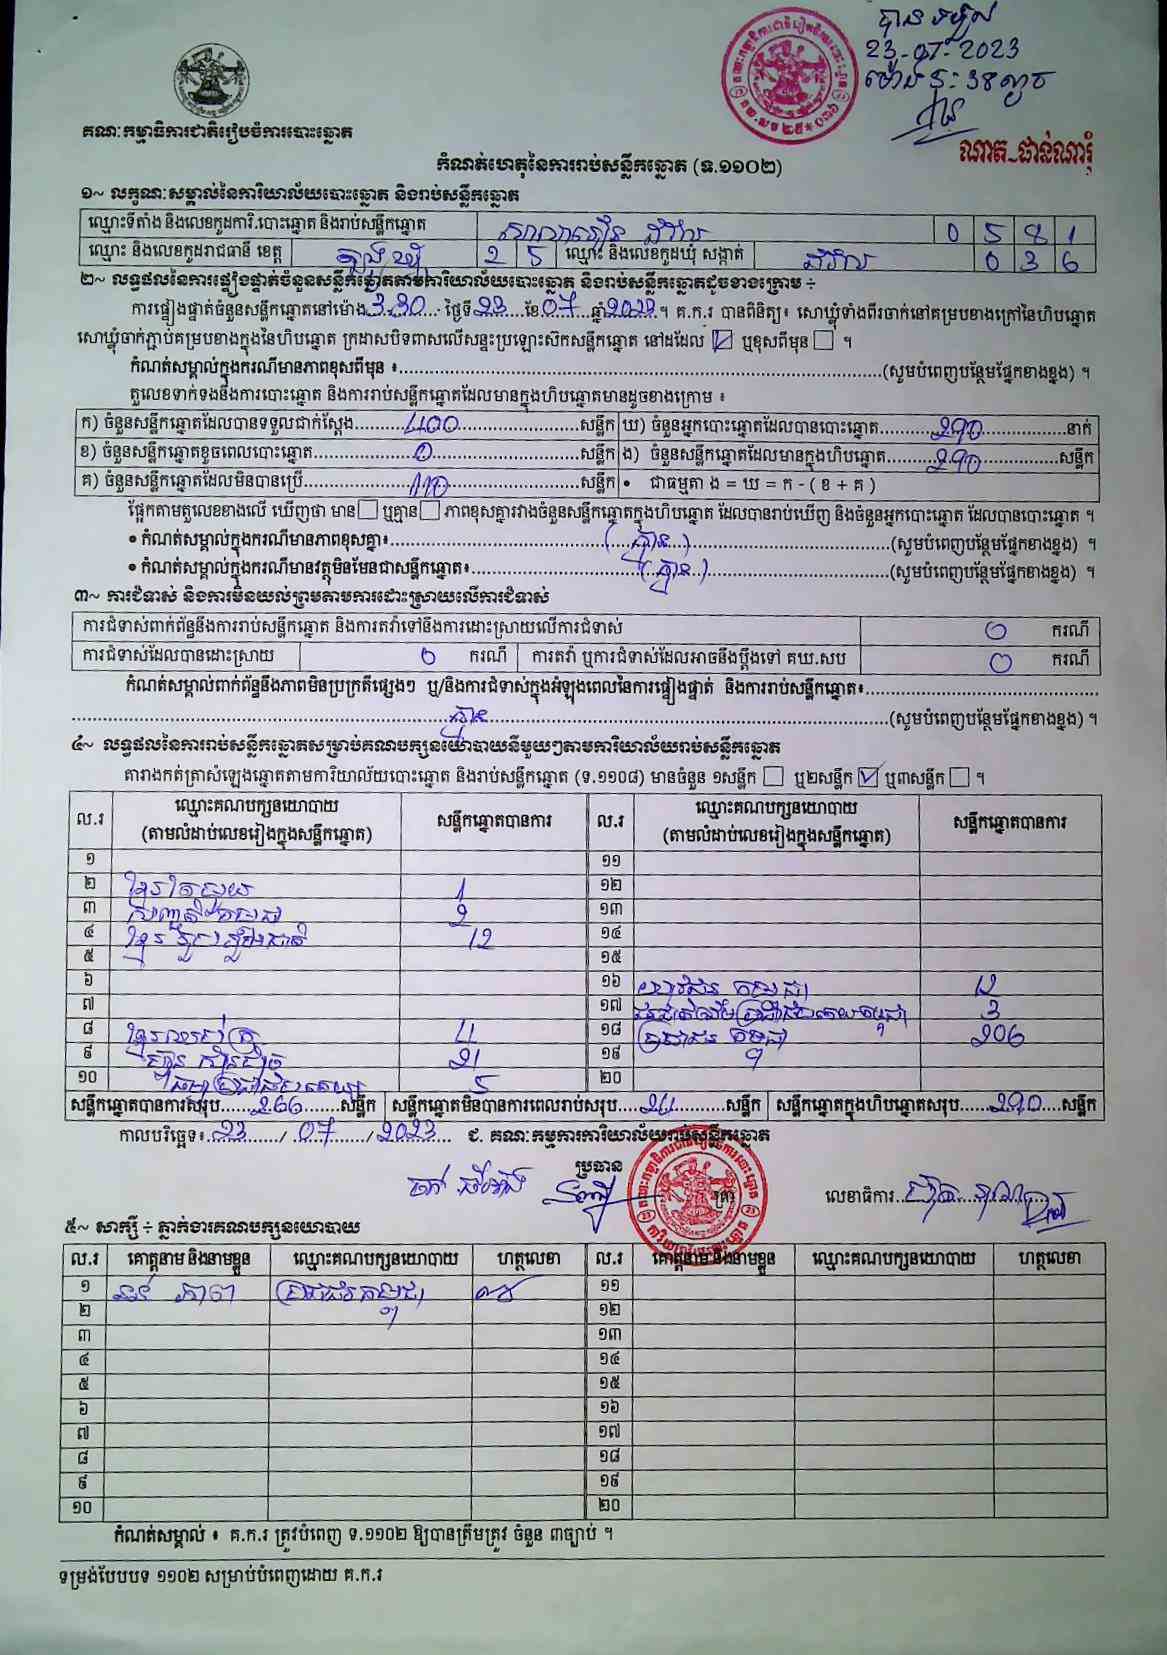 បានទទួល
23-07-2023
គណៈកម្មាធិការជាតិរៀបចំការបោះឆ្នោត
ណាត ផាន់ណារុំ
កំណត់ហេតុនៃការរាប់សន្លឹកឆ្នោត (ទ.១១០២)
១~ លក្ខណៈសម្គាល់នៃការិយាល័យបោះឆ្នោត និងរាប់សន្លឹកឆ្នោត
ឈ្មោះទីតាំង និងលេខកូដការិ.បោះឆ្នោត និងរាប់សន្លឹកឆ្នោត 0 5 8 1
ឈ្មោះ និងលេខកូដរាជធានី ខេត្ត ត្បូងឃ្មុំ 2 5 ឈ្មោះ និងលេខកូដឃុំ សង្កាត់ 0 3 6
២~ លទ្ធផលនៃការផ្ទៀងផ្ទាត់ចំនួនសន្លឹកឆ្នោតតាមការិយាល័យបោះឆ្នោត និងរាប់សន្លឹកឆ្នោតដូចខាងក្រោម ÷
ការផ្ទៀងផ្ទាត់ចំនួនសន្លឹកឆ្នោតនៅម៉ោង 3:30 ថ្ងៃទី 23 ខែ 07 ឆ្នាំ 2023 ។ គ.ក.រ បានពិនិត្យ៖ សោឃ្លុំទាំងពីរចាក់នៅគម្របខាងក្រៅនៃហិបឆ្នោត
សោឃ្លុំចាក់ភ្ជាប់គម្របខាងក្នុងនៃហិបឆ្នោត ក្រដាសបិទពាសលើសន្ទះប្រឡោះស៊កសន្លឹកឆ្នោត នៅដដែល ☑ ឬខុសពីមុន ☐ ។
កំណត់សម្គាល់ក្នុងករណីមានភាពខុសពីមុន ៖ (សូមបំពេញបន្ថែមផ្នែកខាងខ្នង) ។
តួលេខទាក់ទងនឹងការបោះឆ្នោត និងការរាប់សន្លឹកឆ្នោតដែលមានក្នុងហិបឆ្នោតមានដូចខាងក្រោម ៖
ក) ចំនួនសន្លឹកឆ្នោតដែលបានទទួលជាក់ស្តែង 400 សន្លឹក ឃ) ចំនួនអ្នកបោះឆ្នោតដែលបានបោះឆ្នោត 290 នាក់
ខ) ចំនួនសន្លឹកឆ្នោតខូចពេលបោះឆ្នោត 0 សន្លឹក ង) ចំនួនសន្លឹកឆ្នោតដែលមានក្នុងហិបឆ្នោត 290 សន្លឹក
គ) ចំនួនសន្លឹកឆ្នោតដែលមិនបានប្រើ 110 សន្លឹក • ជាធម្មតា ង = ឃ = ក - ( ខ + គ )
ផ្អែកតាមតួលេខខាងលើ ឃើញថា មាន ☐ ឬគ្មាន ☐ ភាពខុសគ្នារវាងចំនួនសន្លឹកឆ្នោតក្នុងហិបឆ្នោត ដែលបានរាប់ឃើញ និងចំនួនអ្នកបោះឆ្នោត ដែលបានបោះឆ្នោត ។
• កំណត់សម្គាល់ក្នុងករណីមានភាពខុសគ្នា៖ (គ្មាន) (សូមបំពេញបន្ថែមផ្នែកខាងខ្នង) ។
• កំណត់សម្គាល់ក្នុងករណីមានវត្ថុមិនមែនជាសន្លឹកឆ្នោត៖ (គ្មាន) (សូមបំពេញបន្ថែមផ្នែកខាងខ្នង) ។
៣~ ការជំទាស់ និងការមិនយល់ព្រមតាមការដោះស្រាយលើការជំទាស់
ការជំទាស់ពាក់ព័ន្ធនឹងការរាប់សន្លឹកឆ្នោត និងការតវ៉ាទៅនឹងការដោះស្រាយលើការជំទាស់ 0 ករណី
ការជំទាស់ដែលបានដោះស្រាយ 0 ករណី ការតវ៉ា ឬការជំទាស់ដែលអាចនឹងប្តឹងទៅ គឃ.សប 0 ករណី
កំណត់សម្គាល់ពាក់ព័ន្ធនឹងភាពមិនប្រក្រតីផ្សេងៗ ឬ/និងការជំទាស់ក្នុងអំឡុងពេលនៃការផ្ទៀងផ្ទាត់ និងការរាប់សន្លឹកឆ្នោត៖
គ្មាន (សូមបំពេញបន្ថែមផ្នែកខាងខ្នង) ។
៤~ លទ្ធផលនៃការរាប់សន្លឹកឆ្នោតសម្រាប់គណបក្សនយោបាយនីមួយៗតាមការិយាល័យរាប់សន្លឹកឆ្នោត
តារាងកត់ត្រាសំឡេងឆ្នោតតាមការិយាល័យបោះឆ្នោត និងរាប់សន្លឹកឆ្នោត (ទ.១១០៨) មានចំនួន ១សន្លឹក ☐ ឬ២សន្លឹក ☑ ឬ៣សន្លឹក ☐ ។
ល.រ ឈ្មោះគណបក្សនយោបាយ (តាមលំដាប់លេខរៀងក្នុងសន្លឹកឆ្នោត) សន្លឹកឆ្នោតបានការ ល.រ ឈ្មោះគណបក្សនយោបាយ (តាមលំដាប់លេខរៀងក្នុងសន្លឹកឆ្នោត) សន្លឹកឆ្នោតបានការ
១ ១១
២ ខ្មែរតែមួយ 1 ១២
៣ 2 ១៣
៤ ខ្មែររួបរួមជាតិ 12 ១៤
៥ ១៥
៦ ១៦ យុវជនកម្ពុជា 12
៧ ១៧ 3
៨ 4 ១៨ ប្រជាជនកម្ពុជា 206
៩ 21 ១៩
១០ 5 ២០
សន្លឹកឆ្នោតបានការសរុប 266 សន្លឹក សន្លឹកឆ្នោតមិនបានការពេលរាប់សរុប 24 សន្លឹក សន្លឹកឆ្នោតក្នុងហិបឆ្នោតសរុប 290 សន្លឹក
កាលបរិច្ឆេទ៖ 23 / 07 / 2023 ជ. គណៈកម្មការការិយាល័យរាប់សន្លឹកឆ្នោត
ប្រធាន
លេខាធិការ
៥~ សាក្សី ÷ ភ្នាក់ងារគណបក្សនយោបាយ
ល.រ គោត្តនាម និងនាមខ្លួន ឈ្មោះគណបក្សនយោបាយ ហត្ថលេខា ល.រ គោត្តនាម និងនាមខ្លួន ឈ្មោះគណបក្សនយោបាយ ហត្ថលេខា
១ ប្រជាជនកម្ពុជា ១១
២ ១២
៣ ១៣
៤ ១៤
៥ ១៥
៦ ១៦
៧ ១៧
៨ ១៨
៩ ១៩
១០ ២០
កំណត់សម្គាល់ ៖ គ.ក.រ ត្រូវបំពេញ ទ.១១០២ ឱ្យបានត្រឹមត្រូវ ចំនួន ៣ច្បាប់ ។
ទម្រង់បែបបទ ១១០២ សម្រាប់បំពេញដោយ គ.ក.រ